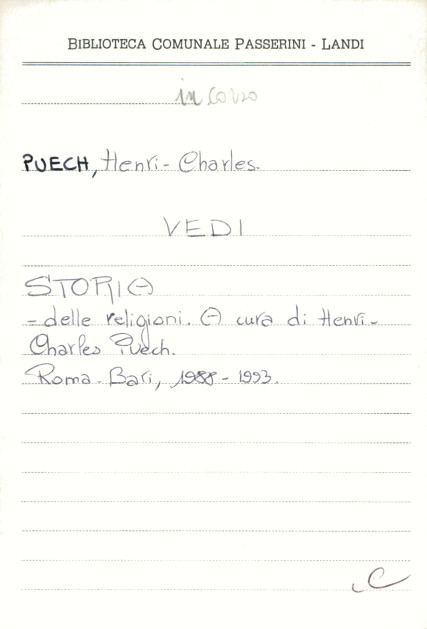 BIBLIOTECA COMUNALE PASSERINI - LANDI
in corso
PUECH, Henri-Charles.
VEDI
STORIA
= delle religioni. A cura di Henri-
Charles Puech.
Roma. Bari, 1988 - 1993.
C